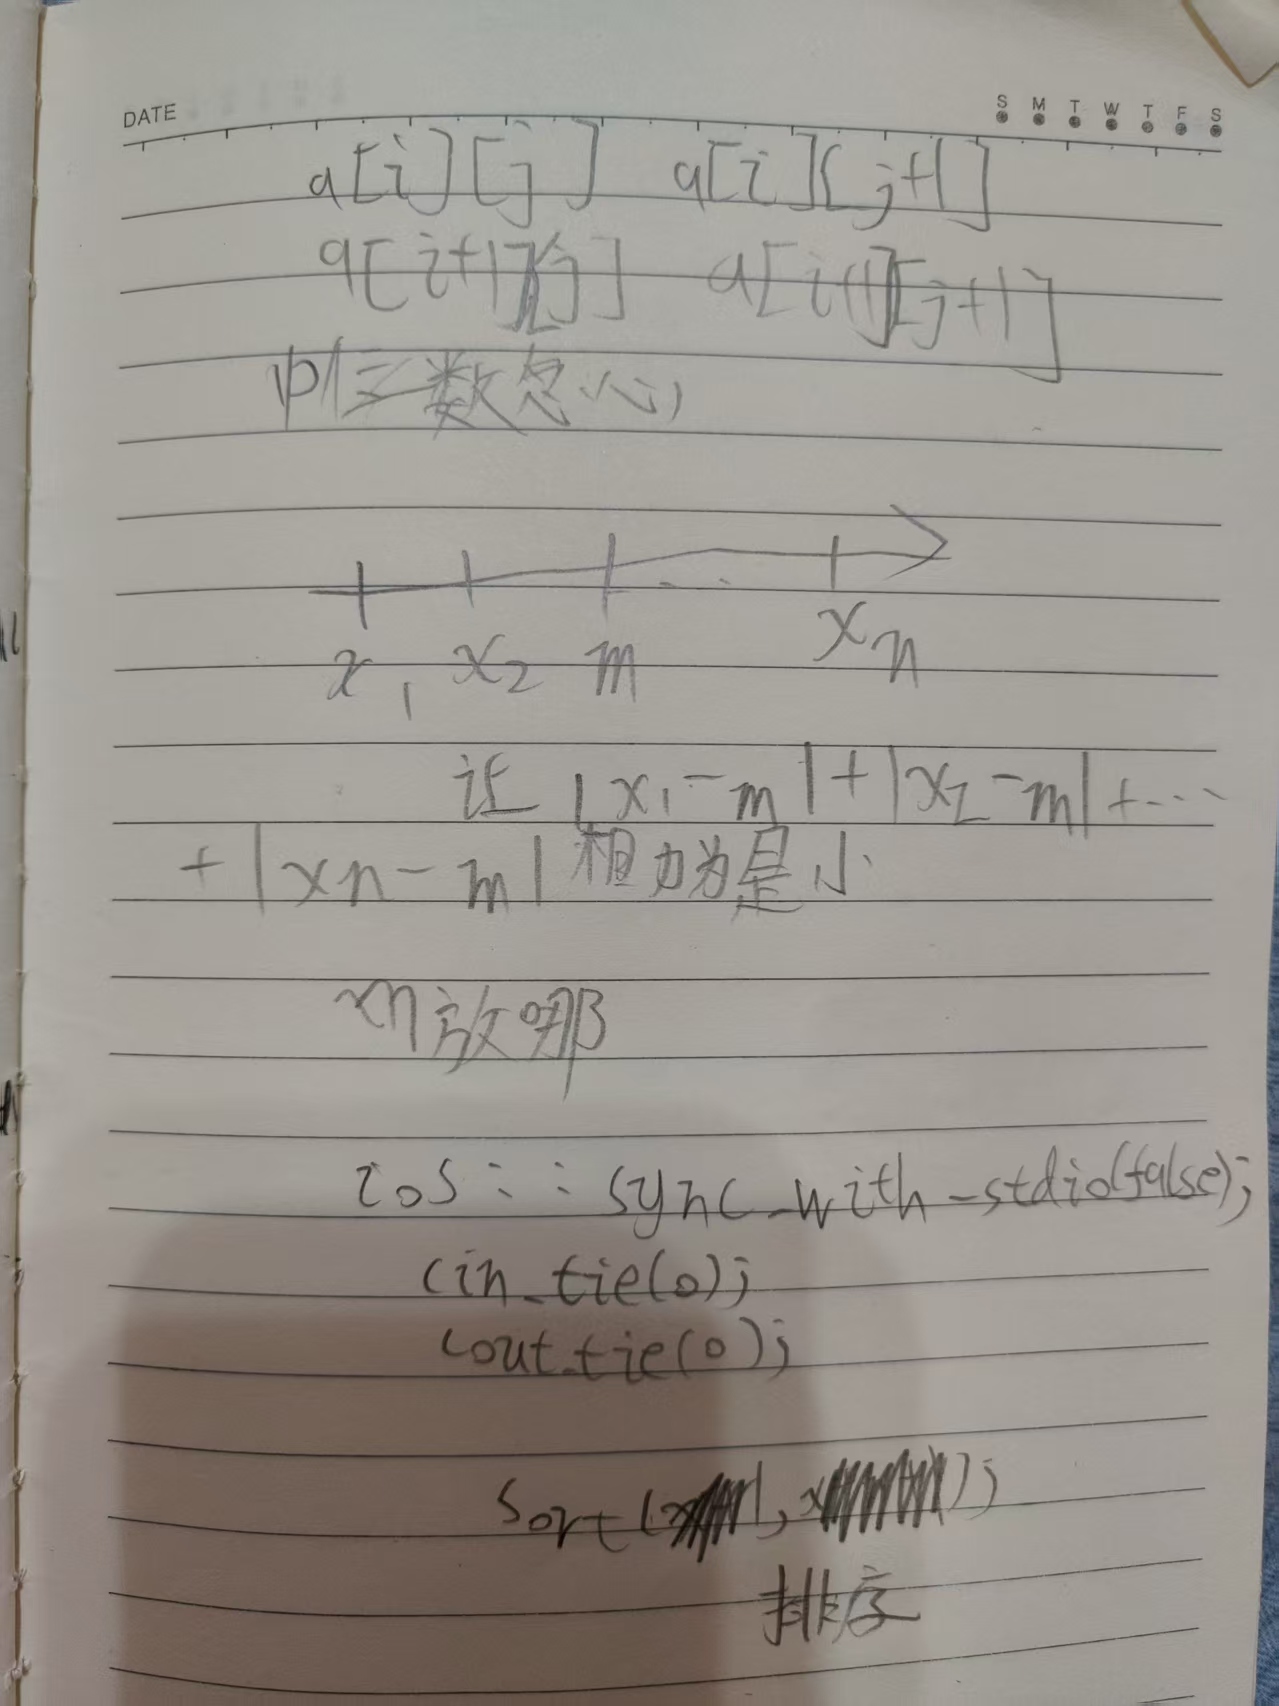 DATE
S M T W T F S
a[i][j] a[i][j+1]
a[i+1][j] a[i+1][j+1]
三数
x₁ x₂ m ... xₙ
让 |x₁-m|+|x₂-m|+...
+|xn-m| 相加为最小
m放哪
ios::sync_with_stdio(false);
cin.tie(0);
cout.tie(0);
sort( , );
排序